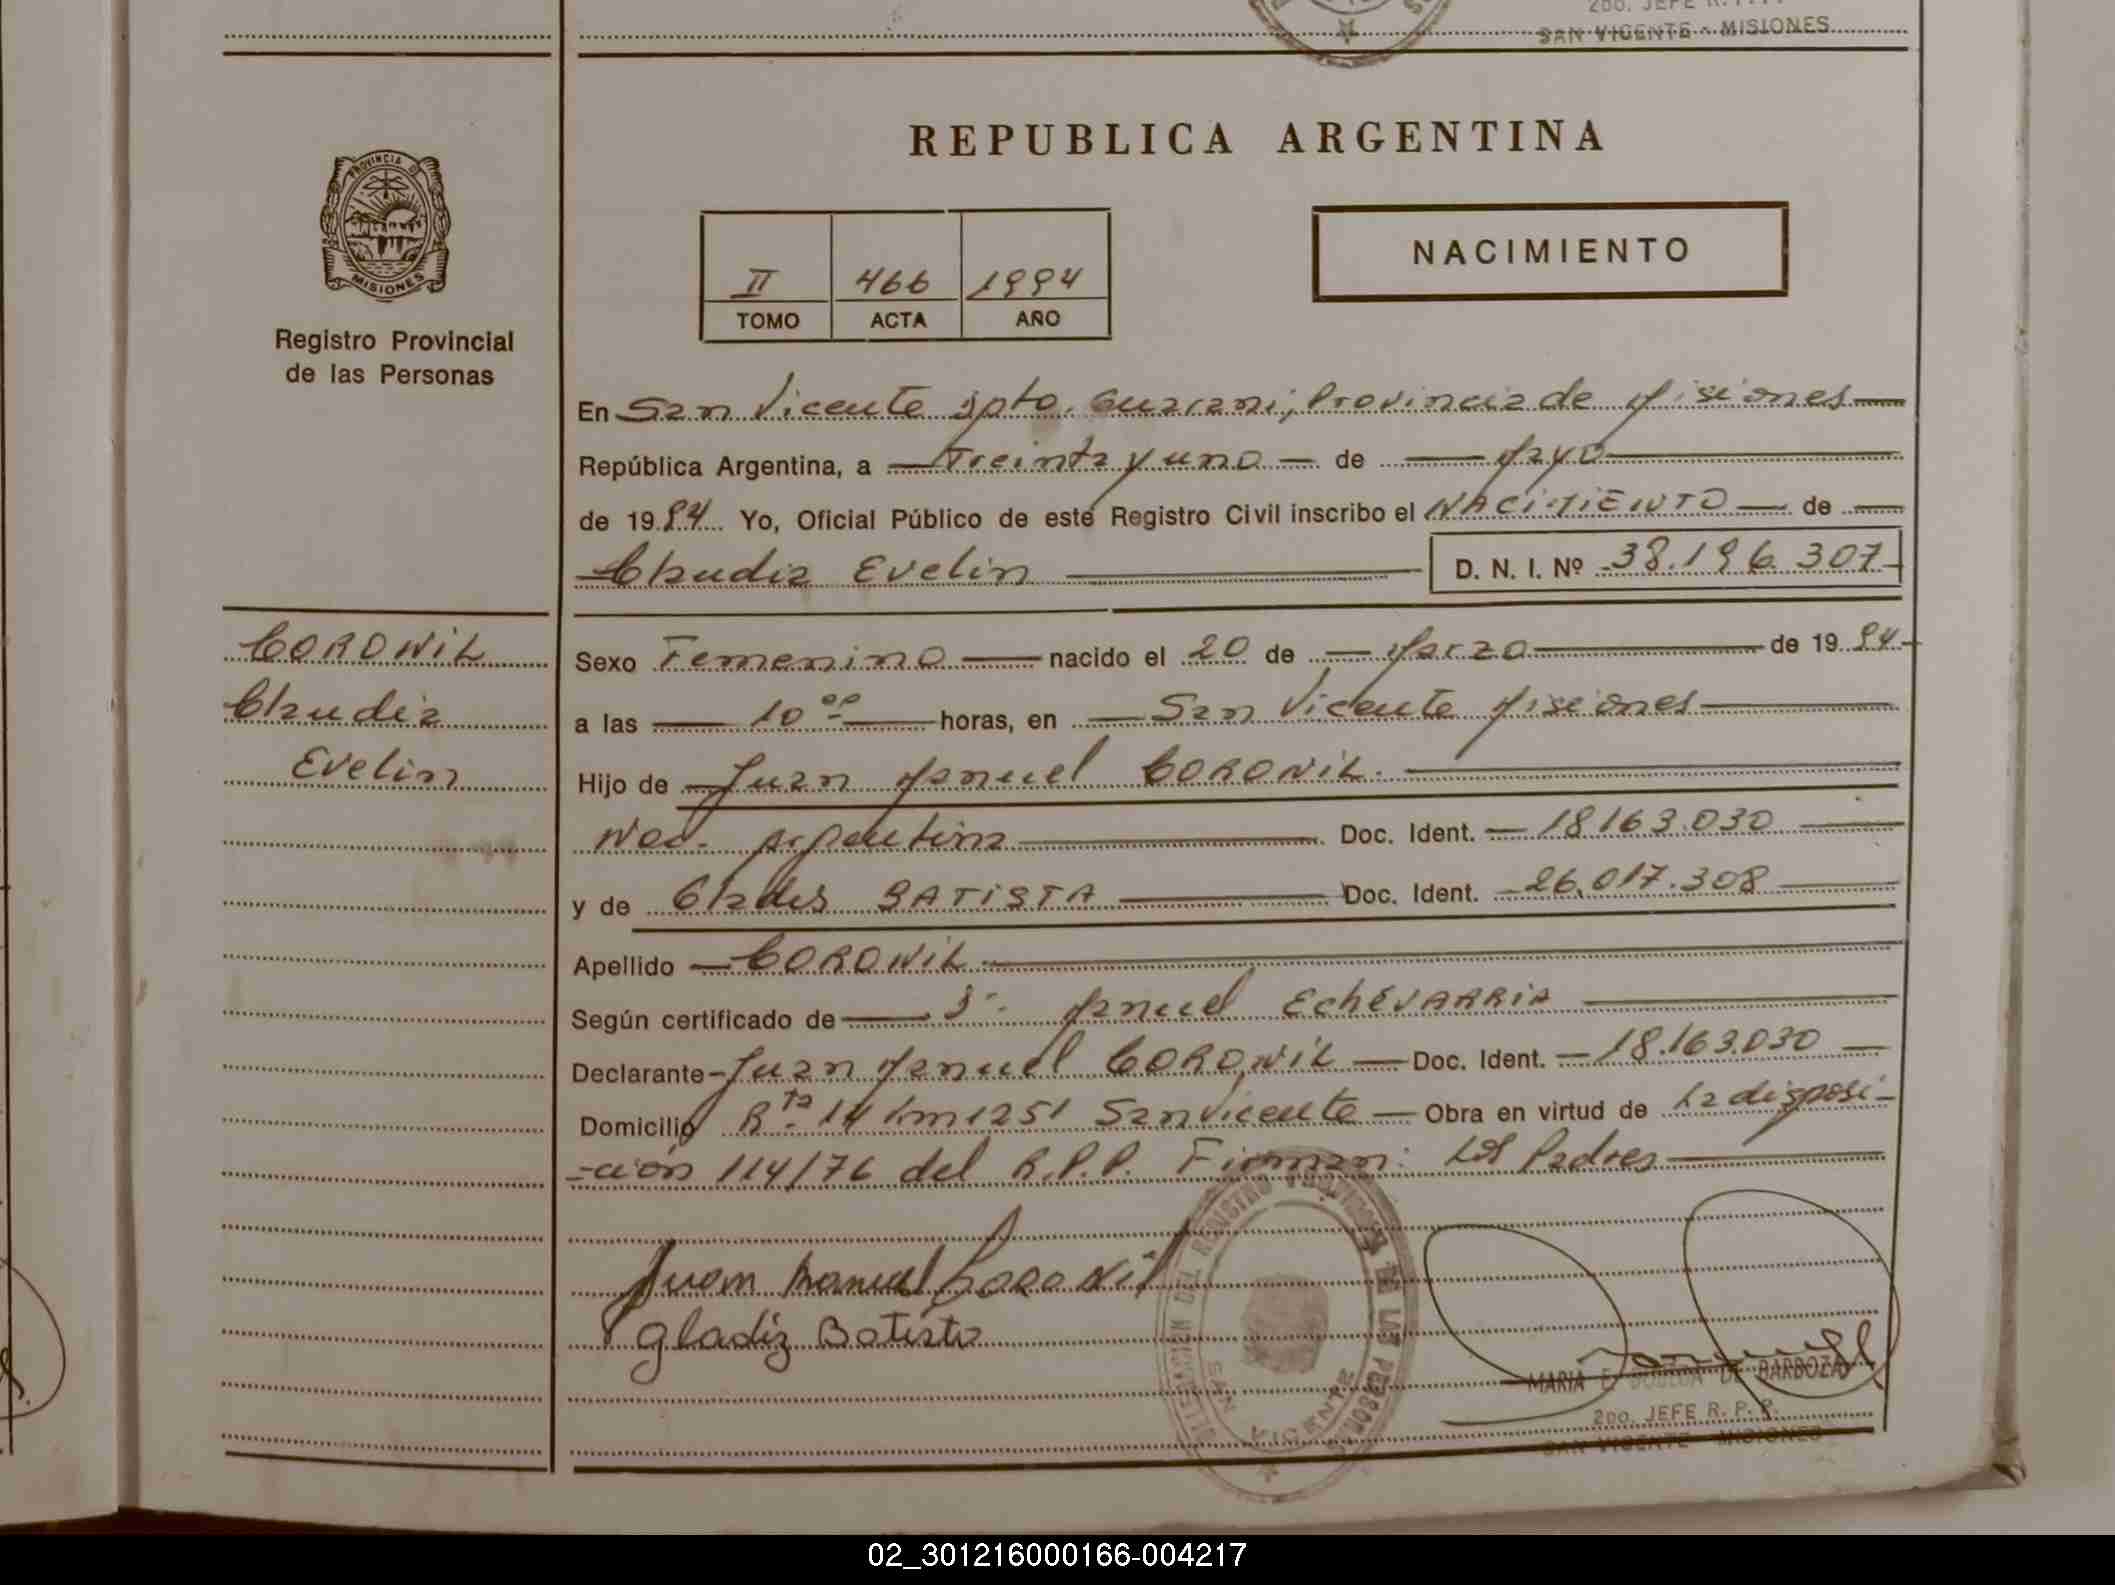 2DO. JEFE R.P.P.
SAN VICENTE - MISIONES
PROVINCIA DE
MISIONES
Registro Provincial
de las Personas
REPUBLICA ARGENTINA
II 466 1994
TOMO ACTA AÑO
NACIMIENTO
En San Vicente Dpto. Guarani, Provincia de Misiones
República Argentina, a Treinta y uno de Mayo
de 1994 Yo, Oficial Público de este Registro Civil inscribo el NACIMIENTO de
Claudia Evelin D. N. I. Nº 38.196.307
CORONIL
Claudia
Evelin
Sexo Femenino nacido el 20 de Marzo de 1994
a las 10 00 horas, en San Vicente Misiones
Hijo de Juan Manuel CORONIL
Nac. Argentina Doc. Ident. 18163.030
y de Glades BATISTA Doc. Ident. 26.017.308
Apellido CORONIL
Según certificado de Dr. Manuel EchEVARRIA
Declarante Juan Manuel CORONIL Doc. Ident. 18.163.030
Domicilio Rta. 14 Km 1251 San Vicente Obra en virtud de La disposi-
-ción 114/76 del R.P.P. Firman: Los Padres
Juan Manuel Coronil
gladiz Batista
DELEGACION DEL REGISTRO PROVINCIAL DE LAS PERSONAS
SAN VICENTE
MARIA E. DE BARBOZA
2DO. JEFE R. P. P.
SAN VICENTE - MISIONES
02_301216000166-004217